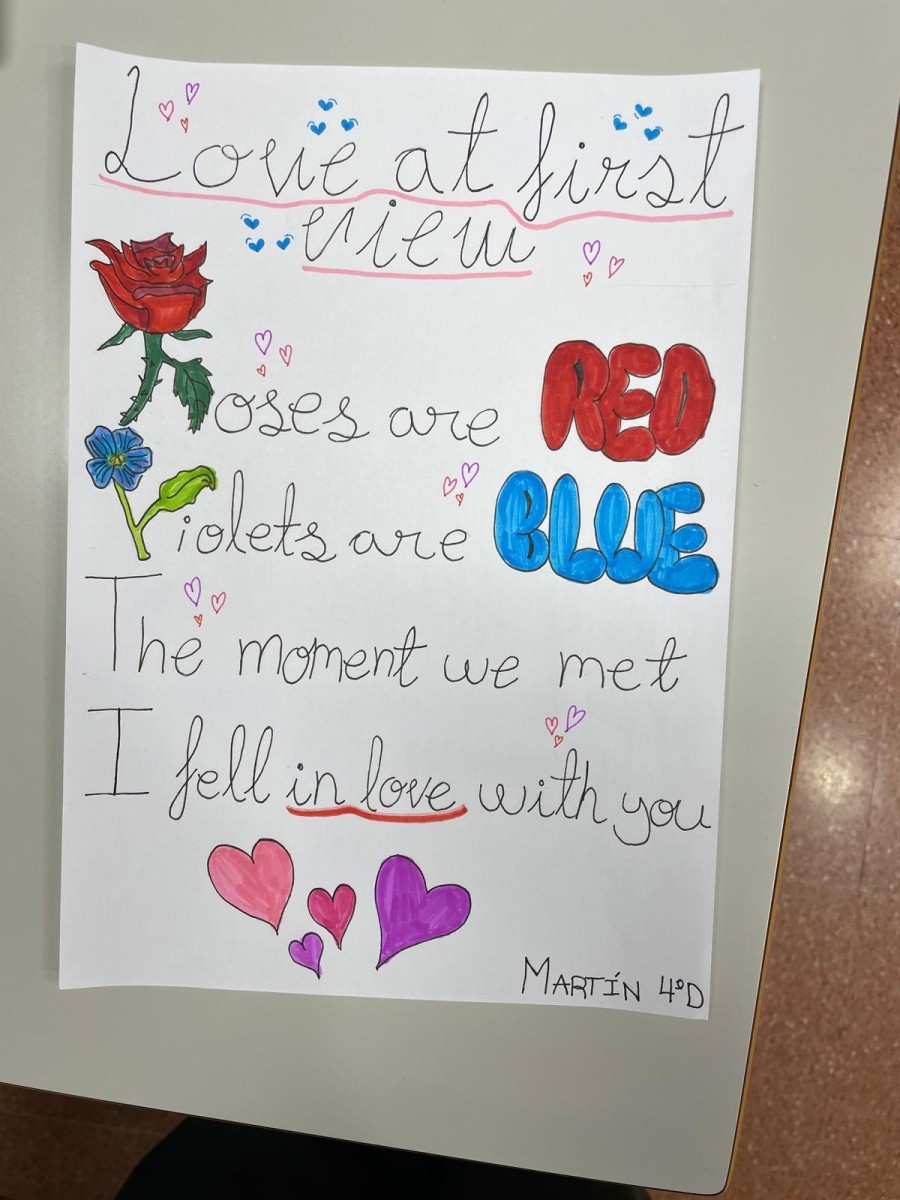 Love at first
view
Roses are RED
Violets are BLUE
The moment we met
I fell in love with you
MARTÍN 4ºD